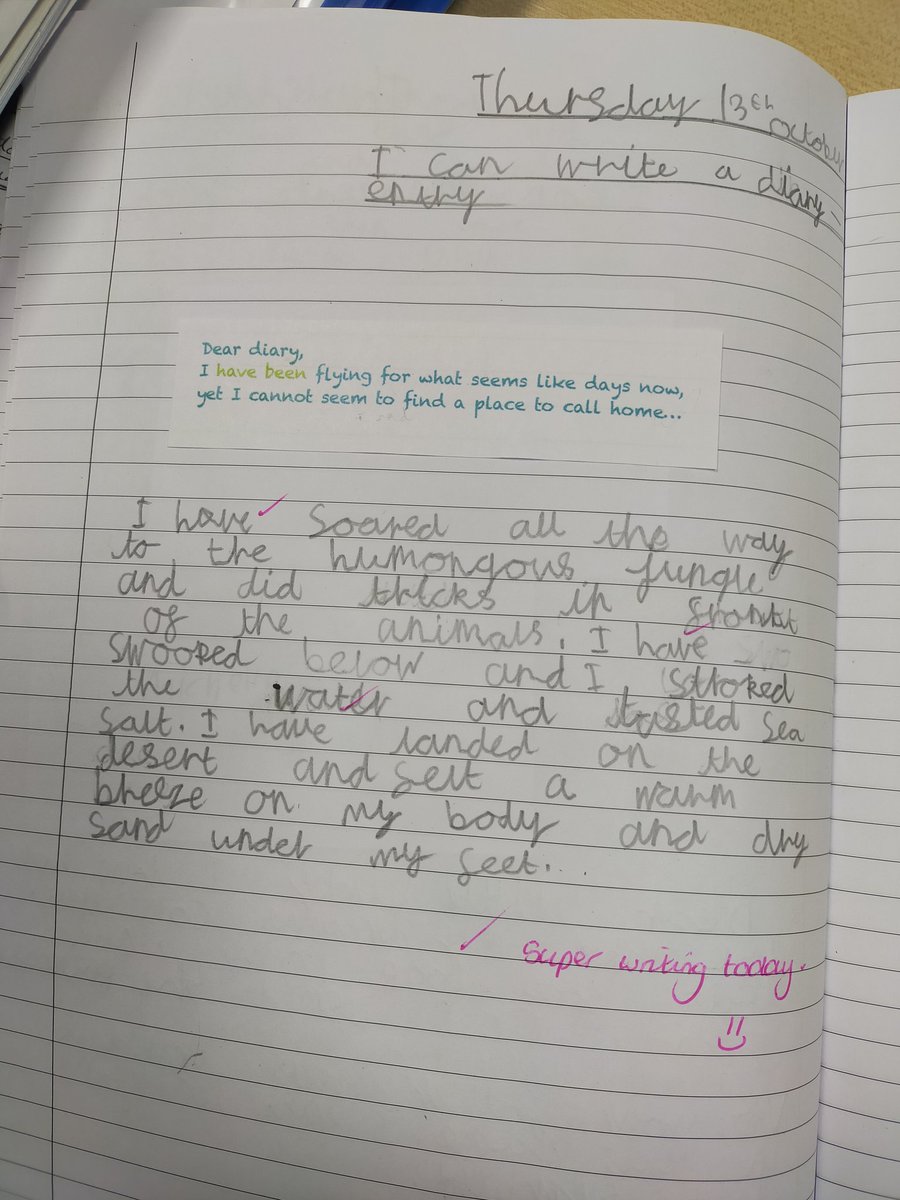 Thursday 13th October
I can write a diary
entry
Dear diary,
I have been flying for what seems like days now,
yet I cannot seem to find a place to call home...
I have soared all the way
to the humongous jungle
and did tricks in front
of the animals. I have
swooped below and I stroked
the water and tasted sea
salt. I have landed on the
desert and felt a warm
breeze on my body and dry
sand under my feet.
Super writing today.